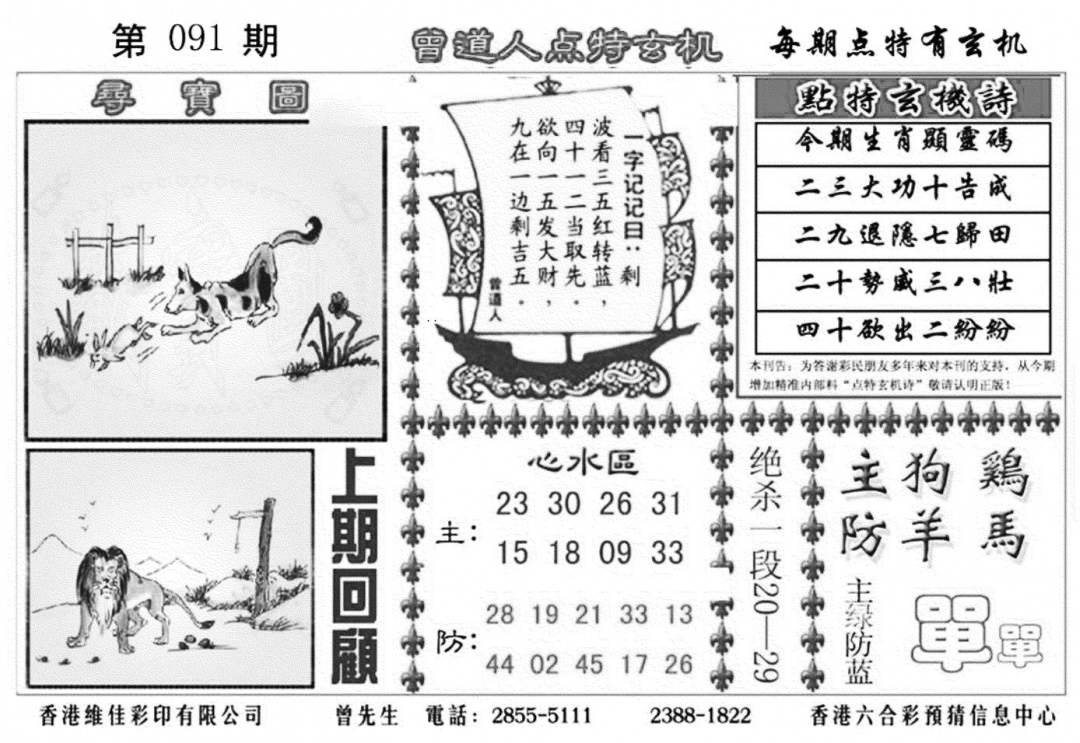 第 091 期
曾道人点特玄机
每期点特有玄机
尋寶圖
一字记记曰：剩
波看三五红转蓝，
四十一二当取先。
欲向一五发大财，
九在一边剩吉五。
曾道人
點特玄機詩
今期生肖顯靈碼
二三大功十告成
二九退隱七歸田
二十勢威三八壯
四十欲出二紛紛
本刊告：为答谢彩民朋友多年来对本刊的支持，从今期
增加精准内部料“点特玄机诗”敬请认明正版！
上期回顧
心水區
主：
23 30 26 31
15 18 09 33
防：
28 19 21 33 13
44 02 45 17 26
绝杀一段20—29
主狗鷄
防羊馬
主绿防蓝
單單
香港维佳彩印有限公司
曾先生
電話：2855-5111
2388-1822
香港六合彩预猜信息中心